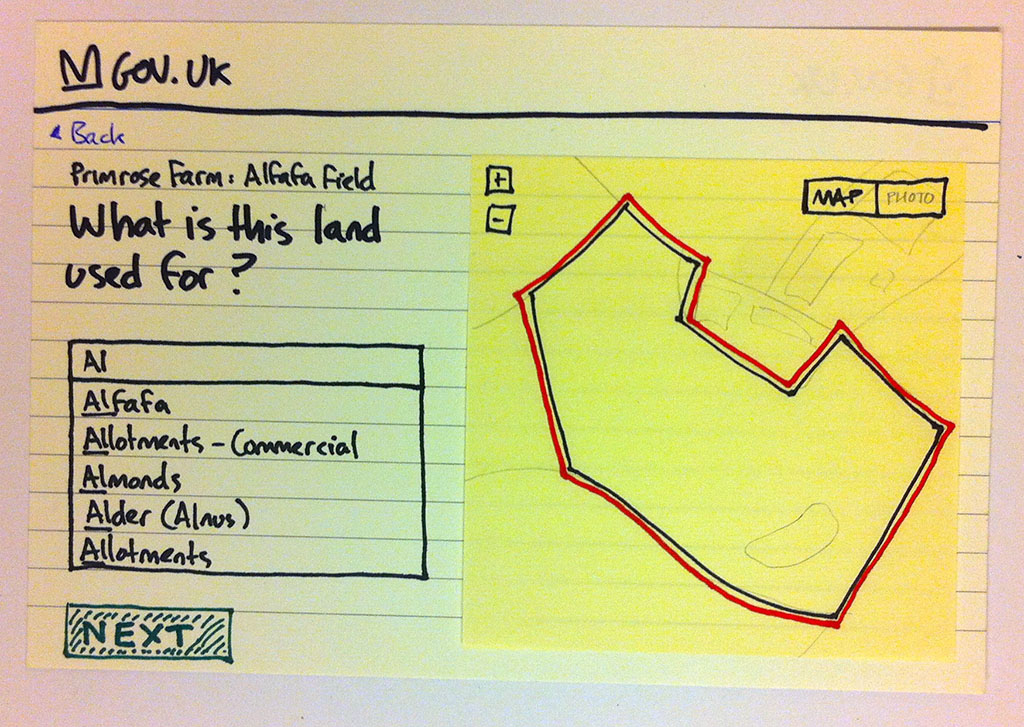 GOV.UK
Back
Primrose Farm: Alfafa Field
What is this land
used for?
Al
Alfafa
Allotments - Commercial
Almonds
Alder (Alnus)
Allotments
NEXT
+
-
MAP PHOTO